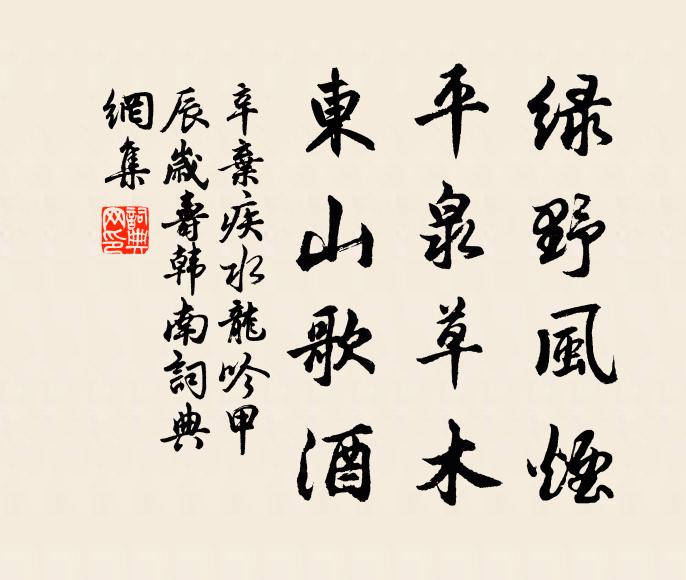 绿野風煙
平泉草木
東山歌酒
辛棄疾水龍吟甲
辰歲壽韩南詞典
網集
詞典
网印